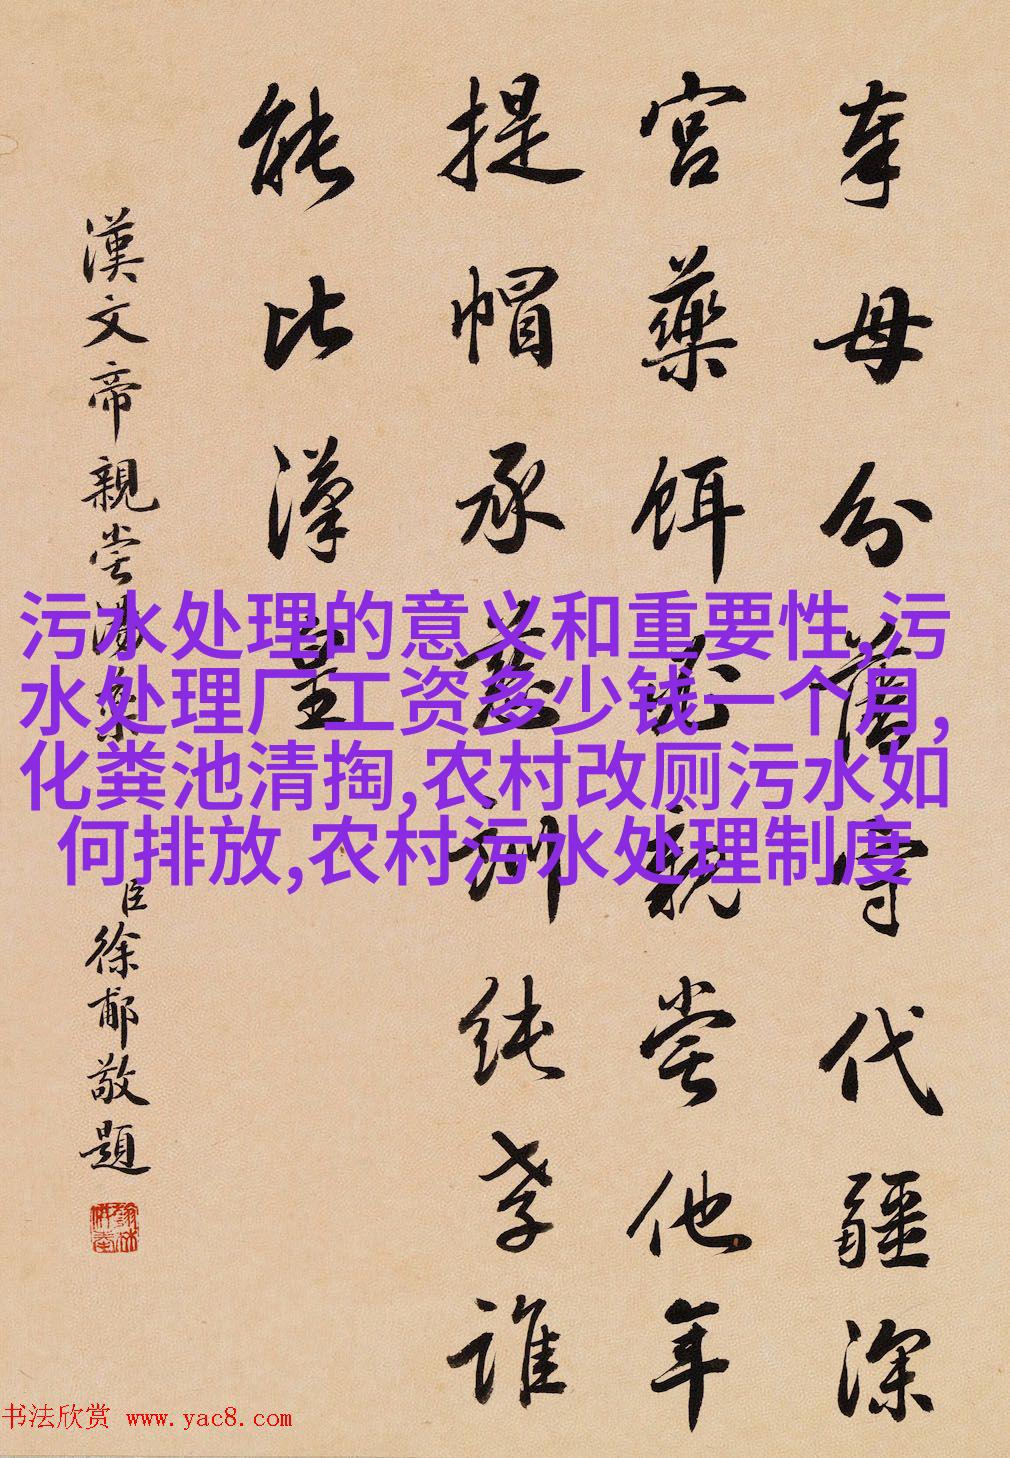 奉母分藩守代疆深
宮藥餌必親嘗他年
提帽承慈訓純孝誰
能比漢皇
漢文帝親嘗湯藥
臣徐郙敬題
污水处理的意义和重要性,污
水处理厂工资多少钱一个月,
化粪池清掏,农村改厕污水如
何排放,农村污水处理制度
书法欣赏 www.yac8.com